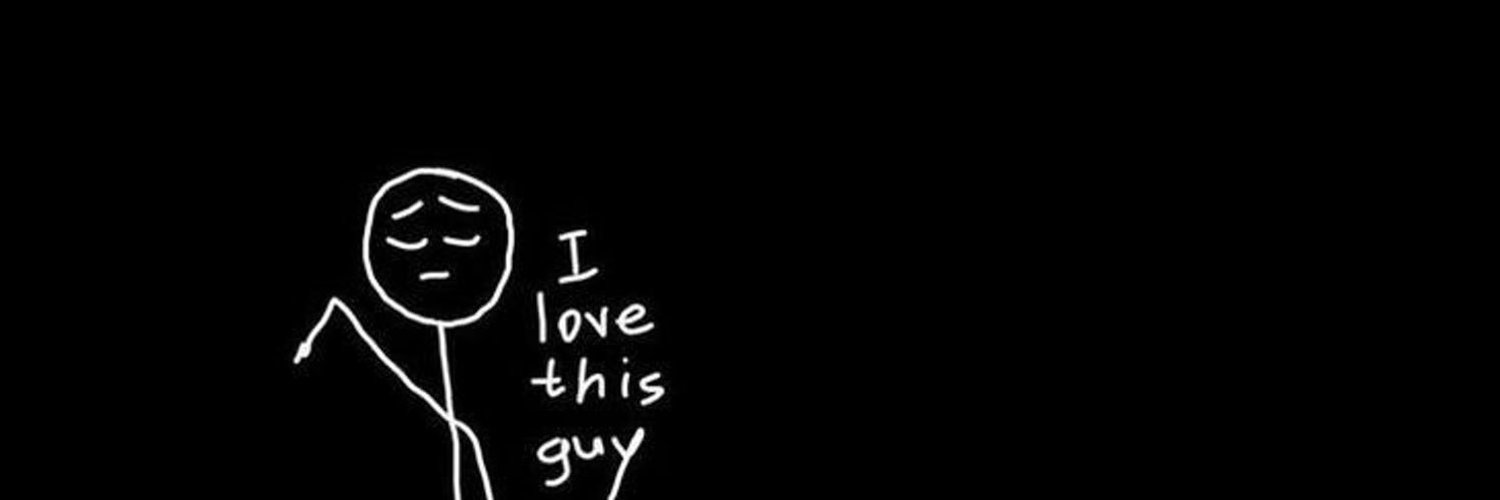 I
love
this
guy